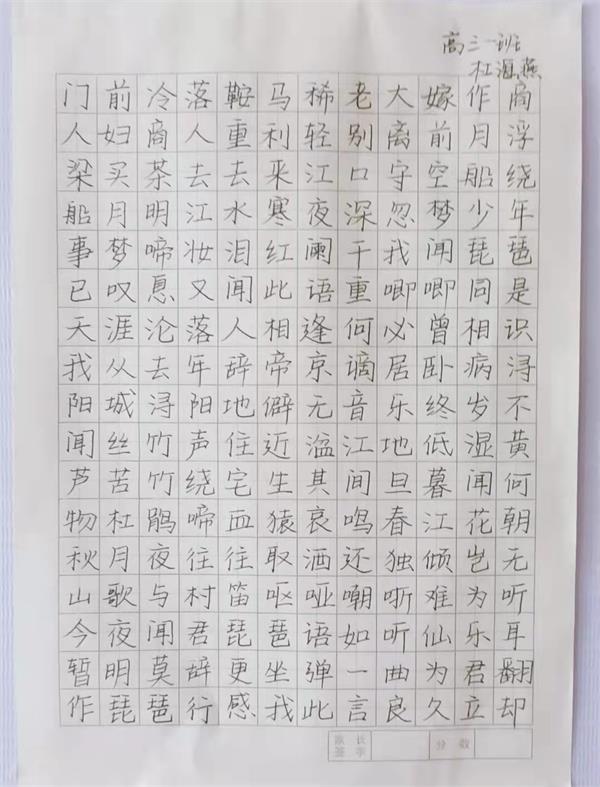 高三一班
杜海燕
门前冷落鞍马稀老大嫁作商
人妇商人重利轻别离前月浮
梁买茶去去来江口守空船绕
船月明江水寒夜深忽梦少年
事梦啼妆泪红阑干我闻琵琶
已叹息又闻此语重唧唧同是
天涯沦落人相逢何必曾相识
我从去年辞帝京谪居卧病浔
阳城浔阳地僻无音乐终岁不
闻丝竹声住近湓江地低湿黄
芦苦竹绕宅生其间旦暮闻何
物杜鹃啼血猿哀鸣春江花朝
秋月夜往往取酒还独倾岂无
山歌与村笛呕哑嘲哳难为听
今夜闻君琵琶语如听仙乐耳
暂明莫辞更坐弹一曲为君翻
作琵琶行感我此言良久立却
家长签字 分数